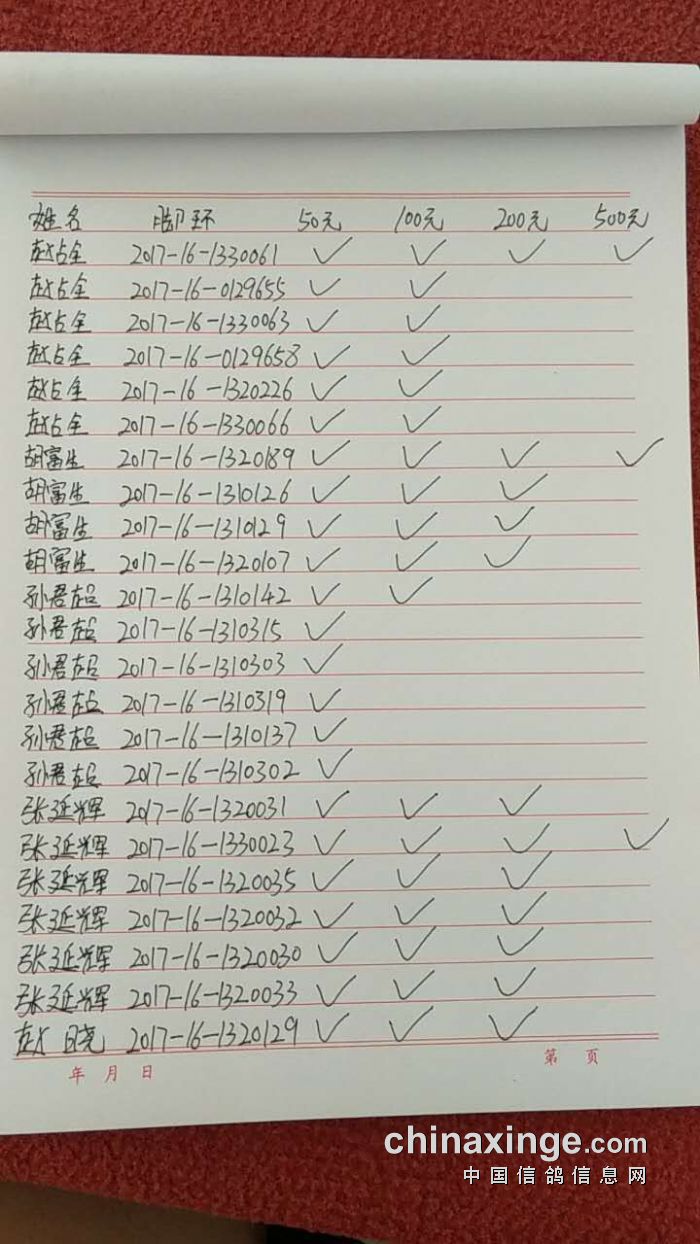 姓名 脚环 50元 100元 200元 500元
赵占全 2017-16-1330061 ✓ ✓ ✓ ✓
赵占全 2017-16-0129655 ✓ ✓
赵占全 2017-16-1330063 ✓ ✓
赵占全 2017-16-0129658 ✓ ✓
赵占全 2017-16-1320226 ✓ ✓
赵占全 2017-16-1330066 ✓ ✓
胡富生 2017-16-1320189 ✓ ✓ ✓ ✓
胡富生 2017-16-1310126 ✓ ✓ ✓
胡富生 2017-16-1310129 ✓ ✓ ✓
胡富生 2017-16-1320107 ✓ ✓ ✓
孙君超 2017-16-1310142 ✓ ✓
孙君超 2017-16-1310315 ✓
孙君超 2017-16-1310303 ✓
孙君超 2017-16-1310319 ✓
孙君超 2017-16-1310137 ✓
孙君超 2017-16-1310302 ✓
张延辉 2017-16-1320031 ✓ ✓ ✓
张延辉 2017-16-1330023 ✓ ✓ ✓ ✓
张延辉 2017-16-1320035 ✓ ✓ ✓
张延辉 2017-16-1320032 ✓ ✓ ✓
张延辉 2017-16-1320030 ✓ ✓ ✓
张延辉 2017-16-1320033 ✓ ✓ ✓
赵晓 2017-16-1320129 ✓ ✓ ✓
年 月 日 第 页
chinaxinge.com
中国信鸽信息网